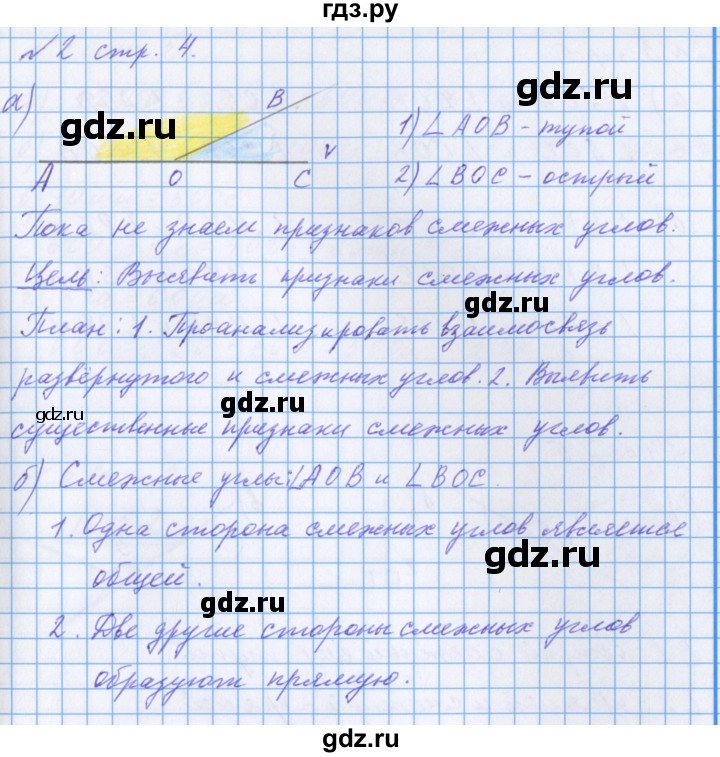 гдз.ру
№2 стр. 4.
gdz.ru
а)
B
gdz.ru
1) ∠AOB - тупой
A O C v
2) ∠BOC - острый
gdz.ru
Пока не знаем признаков смежных углов.
Цель: Выявить признаки смежных углов.
gdz.ru
План: 1. Проанализировать взаимосвязь
развёрнутого и смежных углов. 2. Выявить
gdz.ru
gdz.ru
существенные признаки смежных углов.
б) Смежные углы: ∠AOB и ∠BOC.
1. Одна сторона смежных углов является
gdz.ru
общей.
gdz.ru
2. Две другие стороны смежных углов
образуют прямую.
gdz.ru